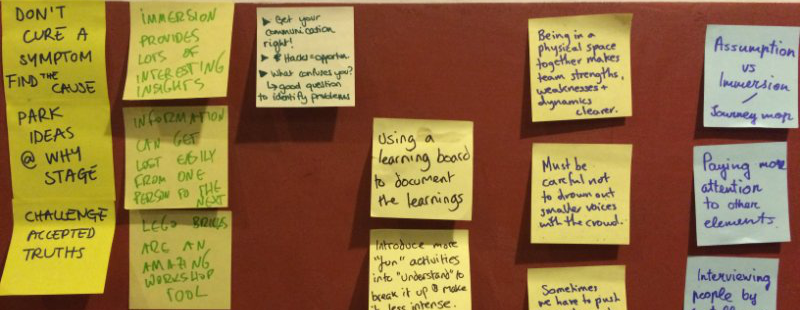 DON'T
CURE A
SYMPTOM
FIND THE
CAUSE
PARK
IDEAS
@ WHY
STAGE
CHALLENGE
ACCEPTED
TRUTHS
IMMERSION
PROVIDES
LOTS OF
INTERESTING
INSIGHTS
INFORMATION
CAN GET
LOST EASILY
FROM ONE
PERSON TO THE
NEXT
LEGO BRICKS
ARE AN
AMAZING
WORKSHOP
TOOL
▶ Get your
communication
right!
▶ Hacks = opportun.
▶ What confuses you?
↳ good question
to identify problems
Using a
learning board
to document
the learnings
Introduce more
"fun" activities
into "understand" to
break it up & make
it less intense.
Being in a
physical space
together makes
team strengths,
weaknesses +
dynamics
clearer.
Must be
careful not
to drown out
smaller voices
with the crowd.
Sometimes
we have to push
Assumption
vs
Immersion
/
Journey map
Paying more
attention
to other
elements.
Interviewing
people by